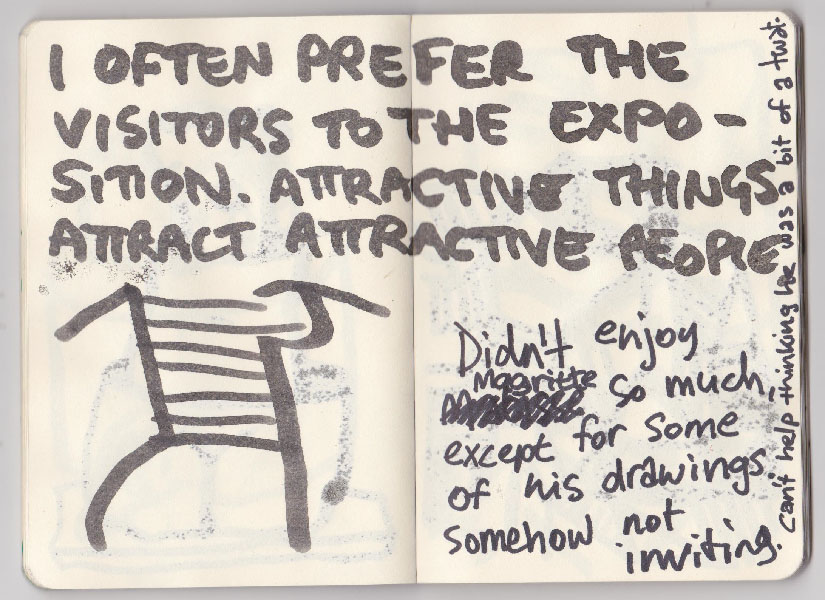 I OFTEN PREFER THE
VISITORS TO THE EXPO-
SITION. ATTRACTIVE THINGS
ATTRACT ATTRACTIVE PEOPLE
Didn't enjoy
Magritte so much,
except for some
of his drawings
somehow not
inviting.
Can't help thinking he was a bit of a twat.